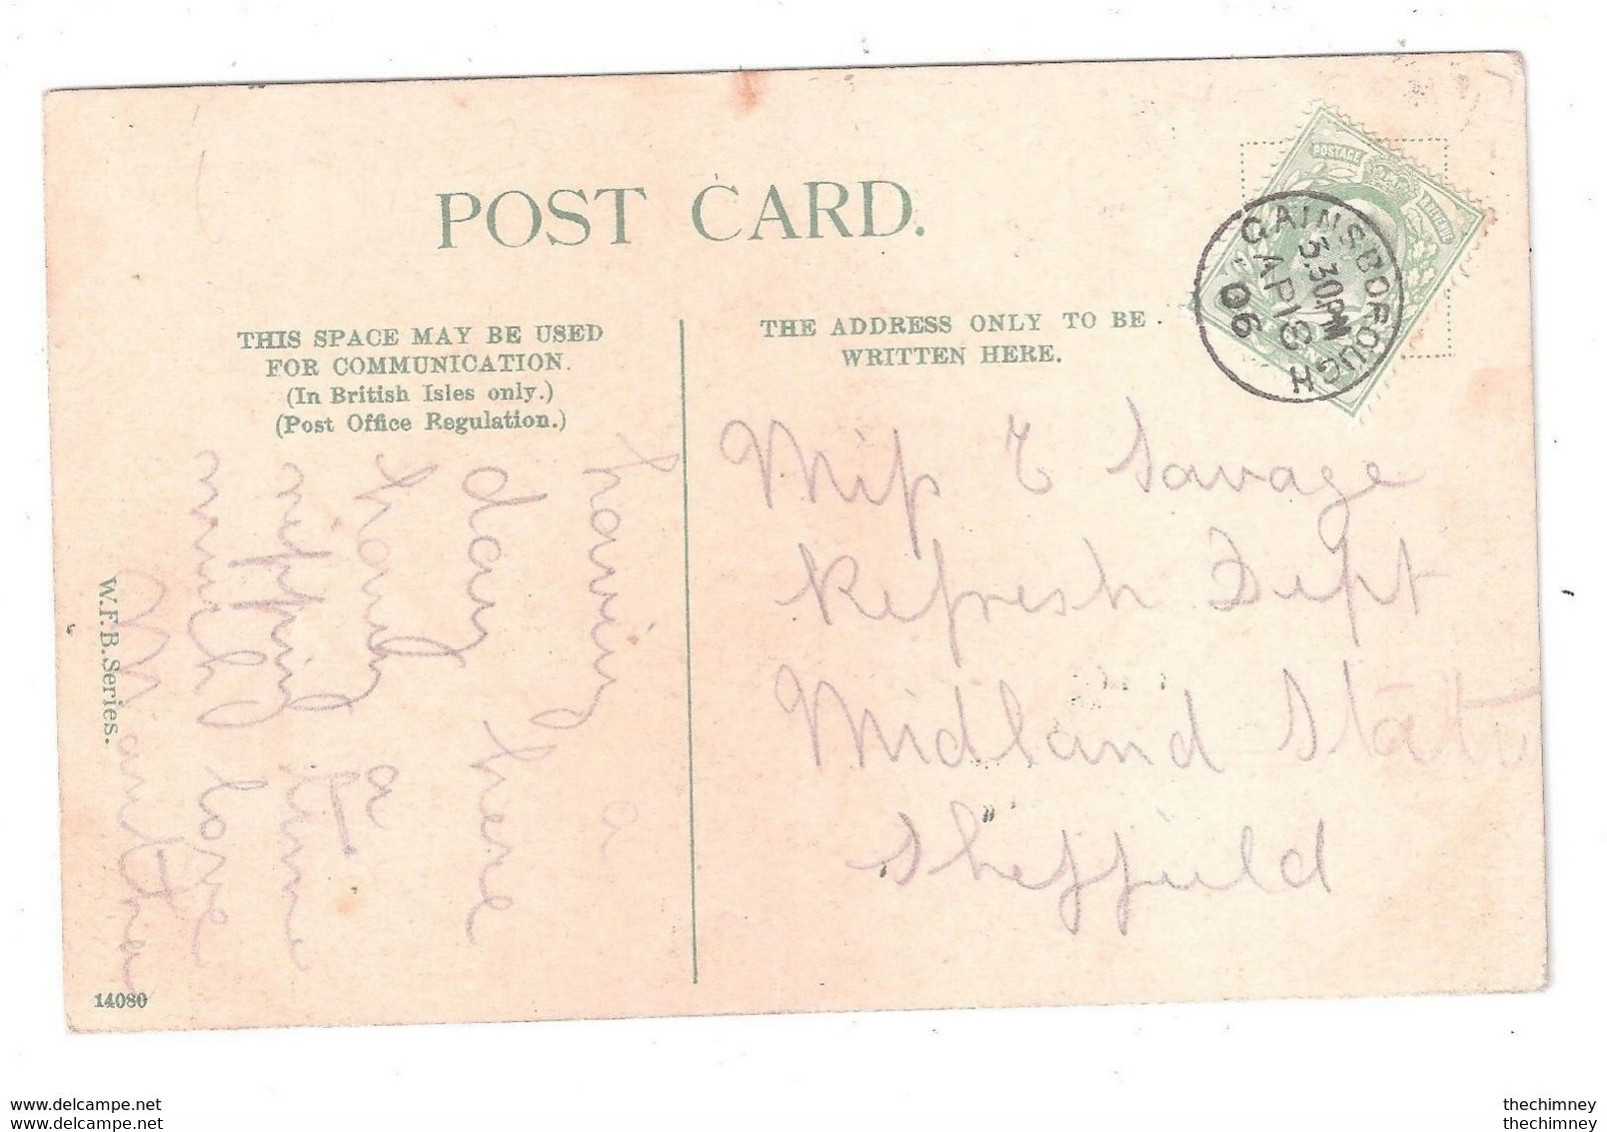 POST CARD.
THIS SPACE MAY BE USED
FOR COMMUNICATION.
(In British Isles only.)
(Post Office Regulation.)
THE ADDRESS ONLY TO BE
WRITTEN HERE.
POSTAGE
REVENUE
GAINSBOROUGH
5.30PM
AP18
06
having a
day here
a
time
much love
W.F.B. Series.
14080
Miſs E Savage
Refresh Dept
Midland Statn
Sheffield
www.delcampe.net
www.delcampe.net
thechimney
thechimney